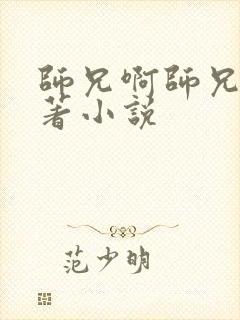 師兄啊師兄
著小説
范少明